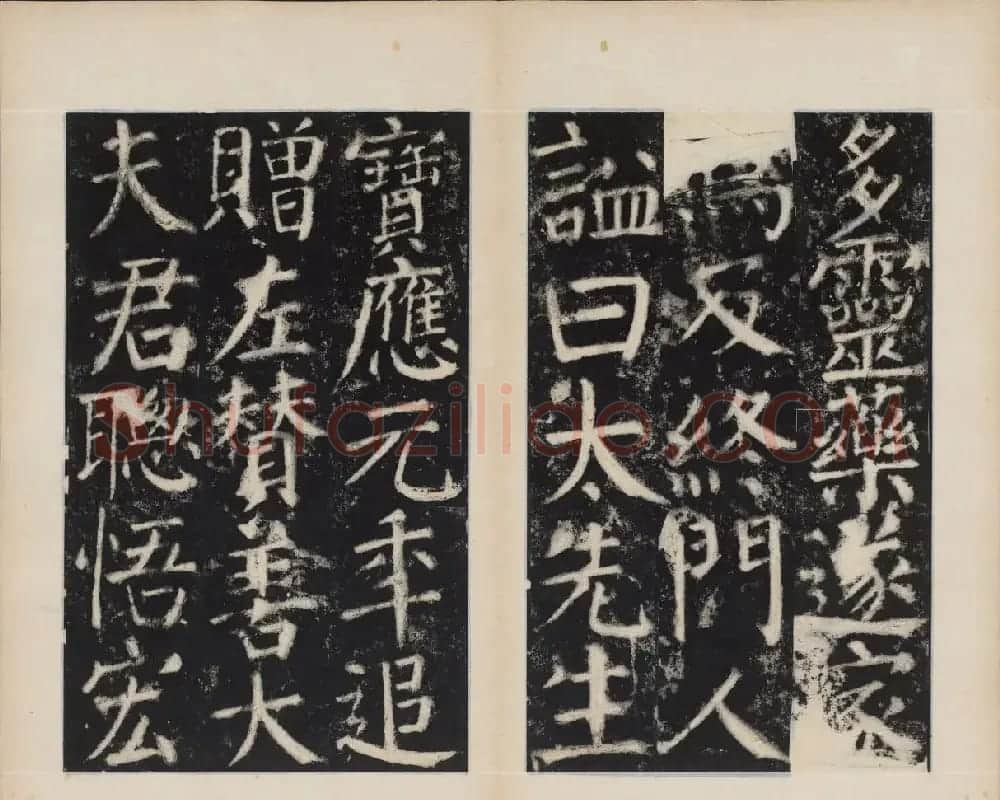 多靈藥遂家
焉及終門人
諡曰太先生
寶應元年追
贈左贊善大
夫君聰悟宏
Shufaziliao.COM